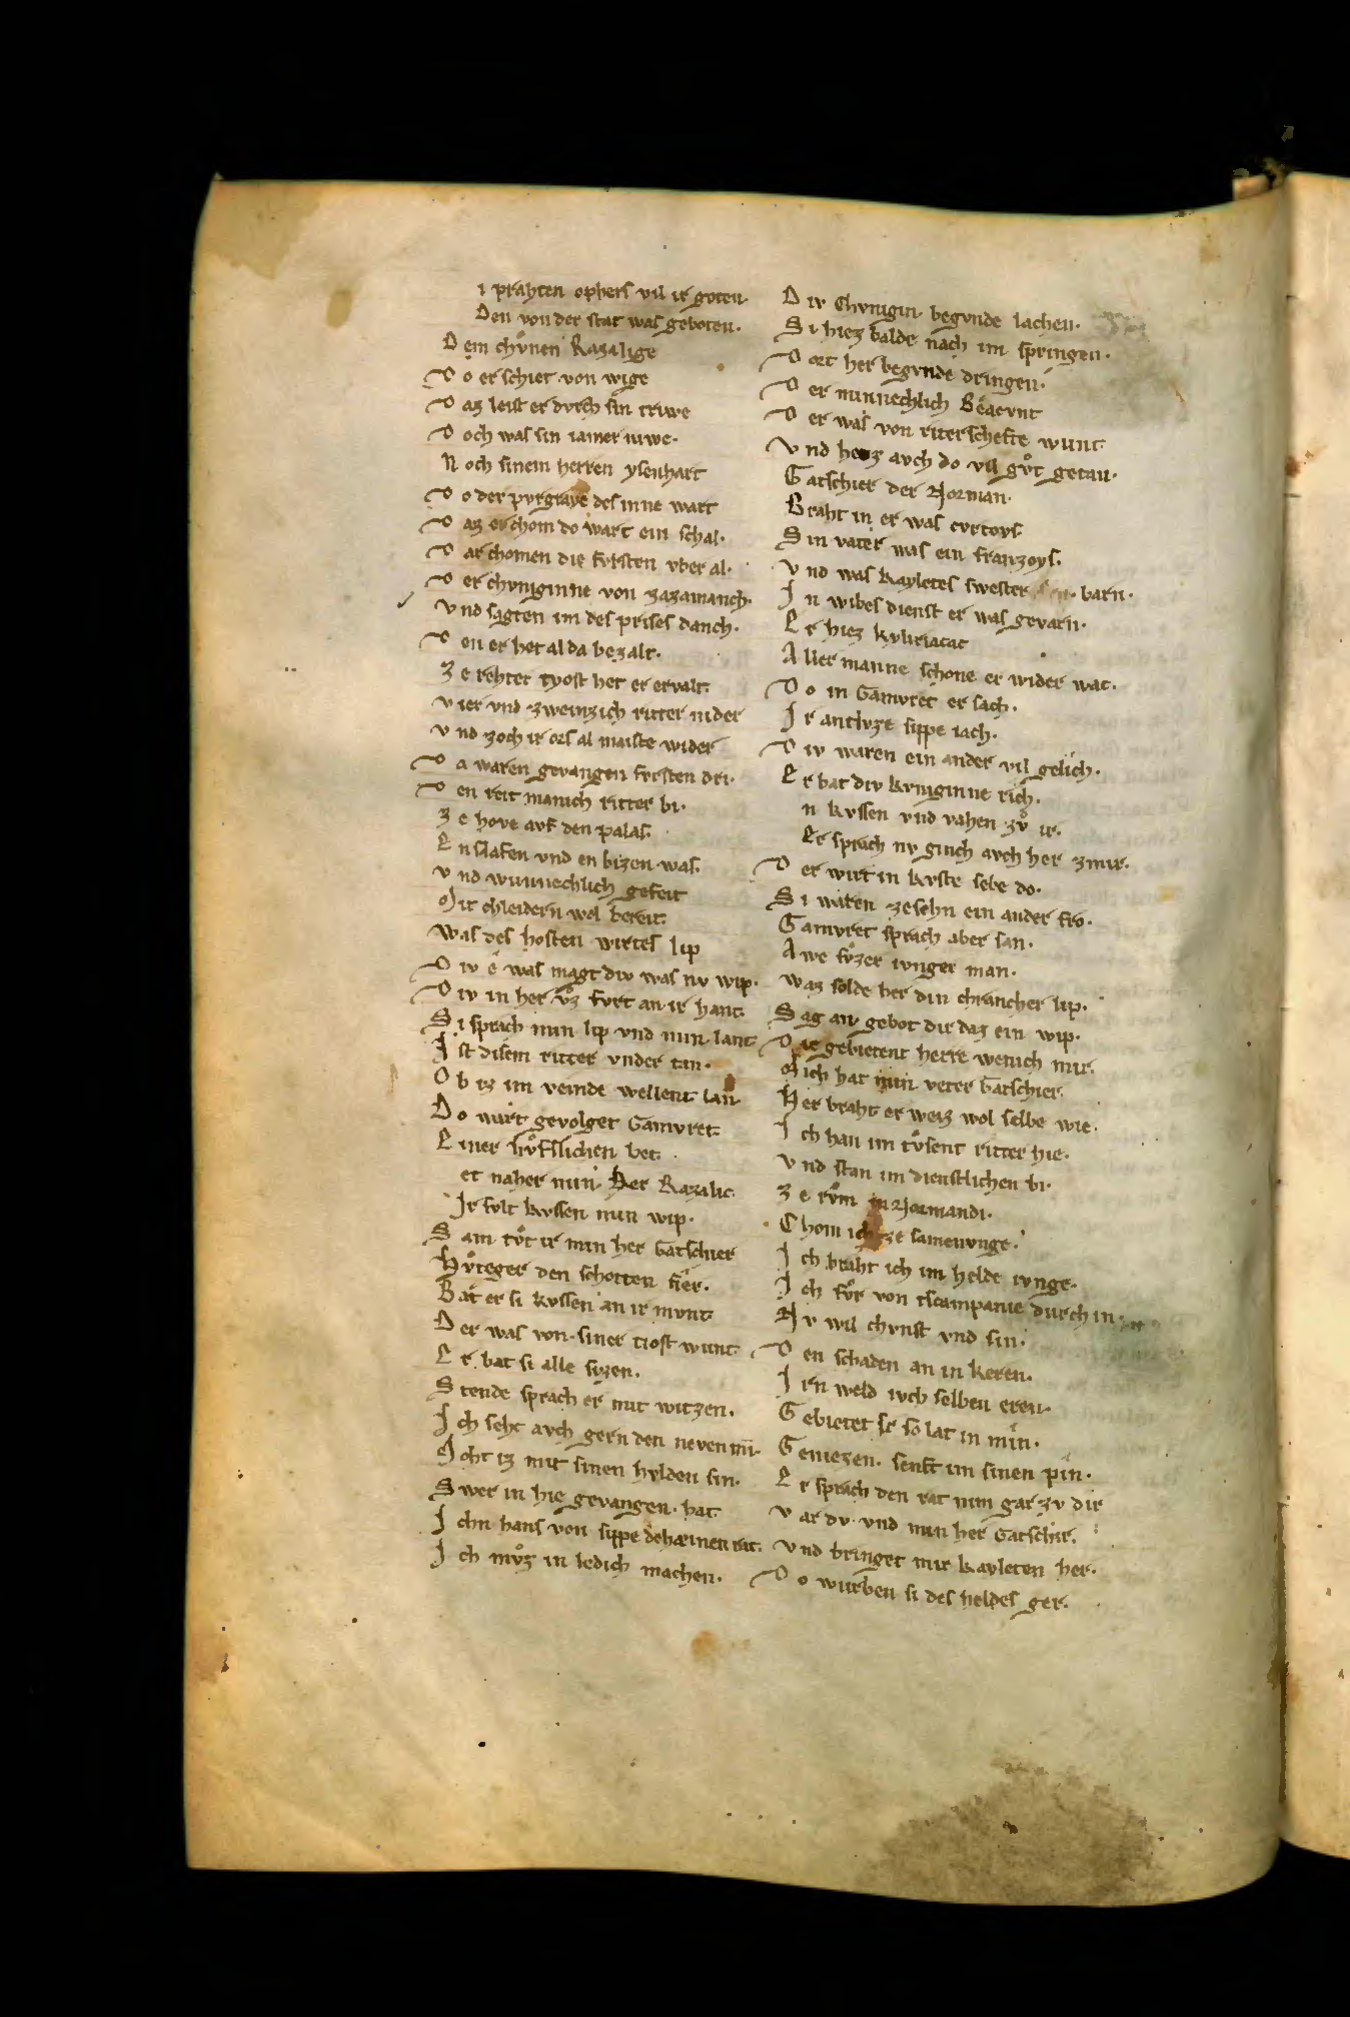 i prahten ophers vil ir goten.
Den von der stat was geboten.
Dem chvͦnen Razalige
Do er schiet von wige
Daz leist er dvrch sin triwe
Doch was sin iamer niwe.
Noch sinem herren ysenhart
Do der pvrgrave des inne wart
Daz er chom do wart ein schal.
Dar chomen die fvrsten vber al.
Der chvniginne von zazamanch.
Vnd sagten im des prises danch.
Den er het al da bezalt.
Ze rehter tyost het er ervalt.
Vier vnd zweinzich ritter nider
Vnd zoch ir ors al maiste wider
Da waren gevangen fvrsten dri.
Den reit manich ritter bi.
Ze hove avf den palas.
Enslafen vnd enbizen was.
Vnd wunnechlich gefeit
Mit chleidern wol bereit.
Was des hosten wirtes lip
Div ê was magt div was nv wip.
Div in her vͦz fvrt an ir hant.
Si sprach min lip vnd min lant
Ist disem ritter vnder tan.
Ob iz im veinde wellent lan
Do wart gevolget Gamvret
Einer hvͦfslichen bet.
et naher min Her Razalic.
Ir svlt kvssen min wip.
Sam tvͦt ir min her Gatschier
Hvͦteger den schotten fier.
Bat er si kvssen an ir mvnt
Der was von siner tiost wunt.
Er bat si alle sizen.
Stende sprach er mit witzen.
Ich sehe avch gern den neven min
Moht iz mit sinen hvlden sin.
Swer in hie gevangen hat.
Ichn hans von sippe deheinen rat.
Ich mvͦz in ledich machen.
Div Chvnigin begvnde lachen.
Si hiez balde nach im springen.
Dort her begvnde dringen.
Der minnechlich Beaevnt
Der was von riterschefte wunt
Vnd hetz avch do vil gvͦt getan.
Gatschier der Norman.
Braht in er was cvrtoys
Sin vater was ein franzoys.
Vnd was kayletes swester barn.
In wibes dienst er was gevarn.
Er hiez kyliriacac
Aller manne schone er wider wac.
Do in Gamvret er sach.
Ir antlvze sippe iach.
Div waren ein ander vil gelich.
Er bat div kvniginne rich.
n kvssen vnd vahen zvͦ ir.
Er sprach nv ginch avch her zmir.
Der wirt in kvste selbe do.
Si waren zesehn ein ander fro.
Gamvret sprach aber san.
Awe svͦzer ivnger man.
Waz solde her din chrancher lip.
Sag an gebot dir daz ein wip.
Die gebietent herre wenich mir.
Mich hat min veter Gatschier.
Her braht er weiz wol selbe wie.
Ich han im tvͦsent ritter hie.
Vnd stan im dienstlichen bi.
Ze rvͦm in Normandi.
Chom ich ze samenvnge.
Ich braht ich im helde ivnge.
Ich fvͦr von tscampanie durch in.
Nv wil chvnst vnd sin.
Den schaden an in keren.
Irn weld ivch selben eren.
Gebietet ir so lat in min.
Geniezen. senft im sinen pin.
Er sprach den rat nim gar zv dir
Var dv vnd min her Gatschir.
Vnd bringet mir kayleten her.
Do wurben si des heldes ger.